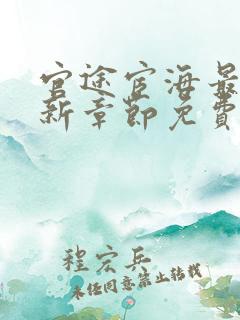 官途宦海最
新章節免費
程宏兵
未经同意禁止转载